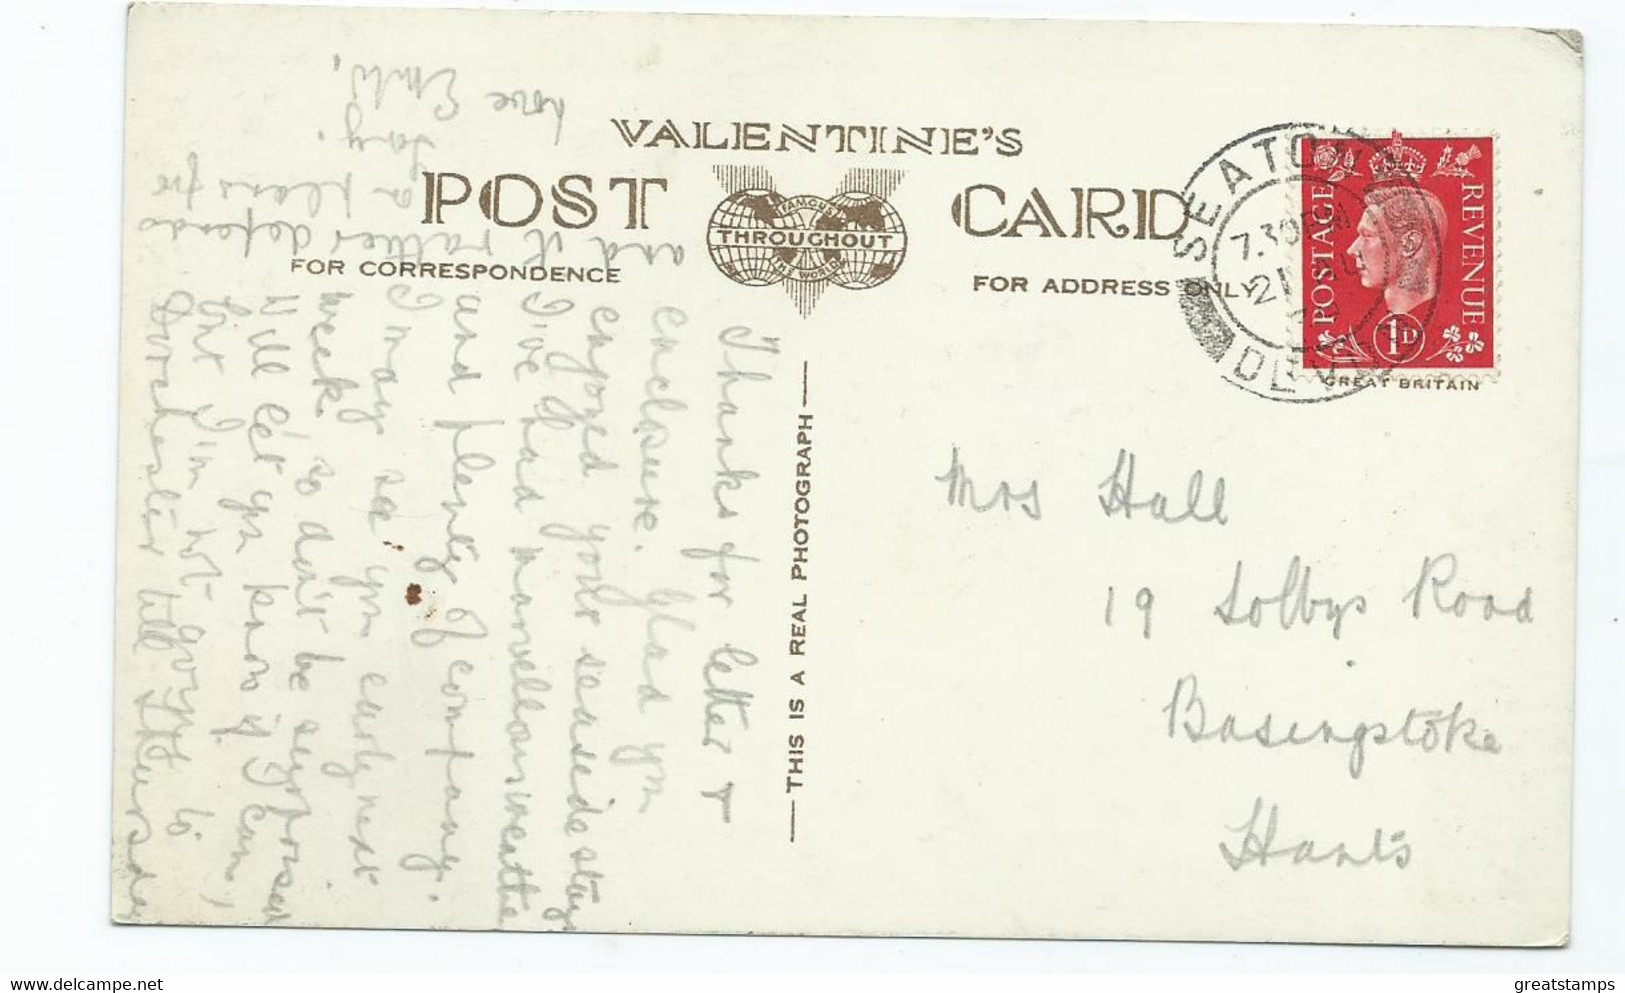 VALENTINE'S
POST CARD
FAMOUS
THROUGHOUT
THE WORLD
FOR CORRESPONDENCE
FOR ADDRESS ONLY
THIS IS A REAL PHOTOGRAPH
SEATON
7.30PM
21
DEVON
POSTAGE
REVENUE
1D
GREAT BRITAIN
Mrs Hall
19 Solbys Road
Basingstoke
Hants
Thanks for letter +
enclosure. Glad you
enjoyed your seaside stay
I've had marvellous weather
and plenty of company.
I may see you early next
week so don't be surprised
Will let you know if I can,
but I'm not going to
Dorchester till Thursday
and it rather depends
a
love
greatstamps